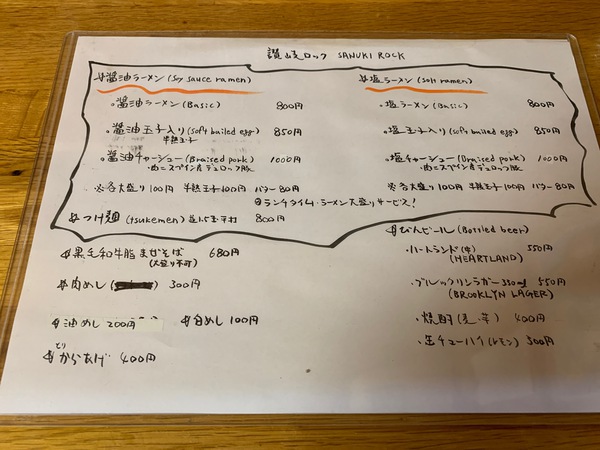 讃岐ロック SANUKI ROCK
醤油ラーメン (Soy sauce ramen)
醤油ラーメン (Basic) 800円
醤油玉子入り (soft builed egg) 850円
半熟玉子
醤油チャーシュー (Braised pork) 1000円
スペイン産デュロック豚
※各大盛り100円 半熟玉子100円 バター80円
◎ランチタイム・ラーメン大盛りサービス!
つけ麺 (tsukemen) 800円
塩ラーメン (salt ramen)
塩ラーメン (Basic) 800円
塩玉子入り (soft builed egg) 850円
塩チャーシュー (Braised pork) 1000円
スペイン産デュロック豚
※各大盛り100円 半熟玉子100円 バター80円
黒毛和牛脂まぜそば 680円
(大盛り不可)
肉めし 300円
油めし 200円
白めし 100円
とり
からあげ 400円
びんビール (Bottled beer)
・ハートランド(中) 550円
(HEARTLAND)
・ブルックリンラガー 330ml 550円
(BROOKLYN LAGER)
・焼酎 (麦・芋) 400円
・缶チューハイ (レモン) 300円